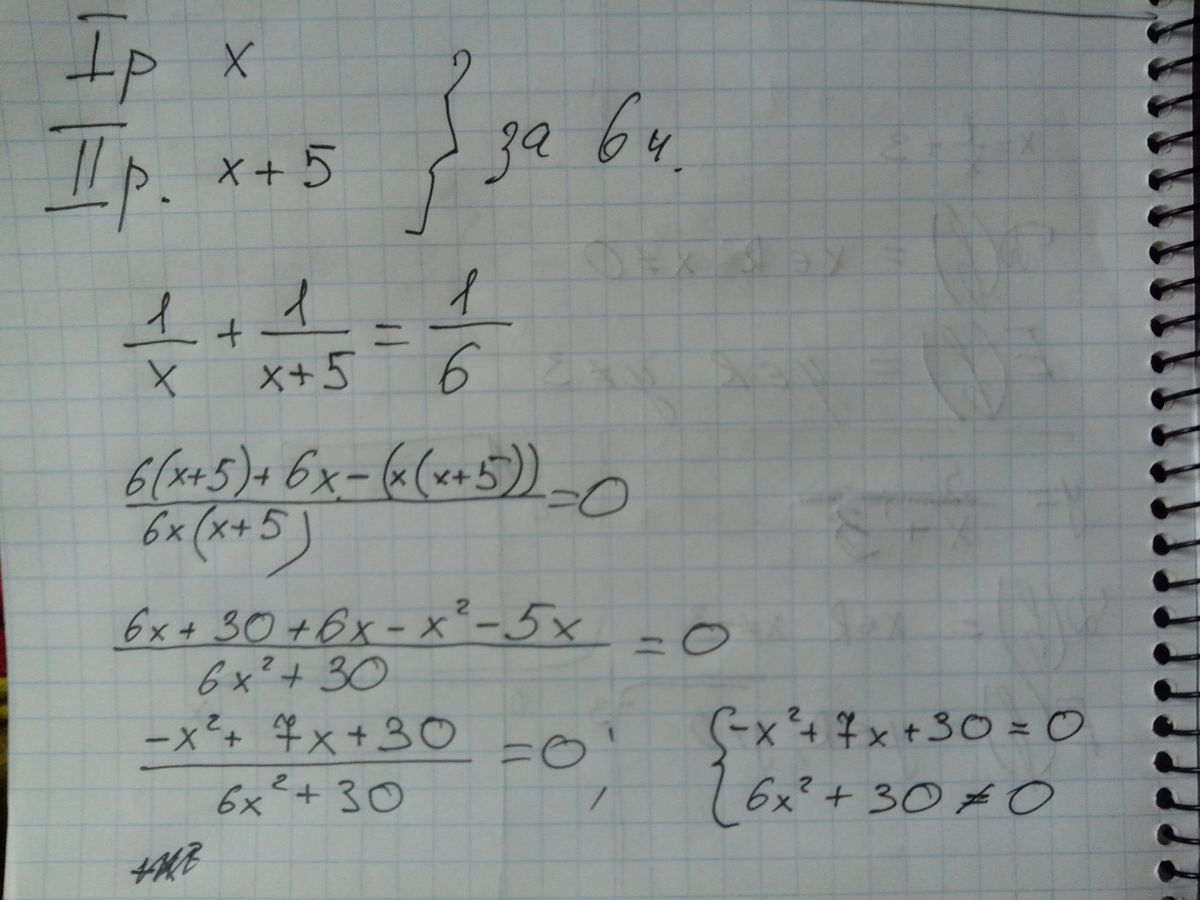 I р x
II р. x+5 } за 6 ч.
1/x + 1/(x+5) = 1/6
(6(x+5)+6x-(x(x+5)))/(6x(x+5)) = 0
(6x+30+6x-x²-5x)/(6x²+30) = 0
(-x²+7x+30)/(6x²+30) = 0; { -x²+7x+30=0
6x²+30≠0